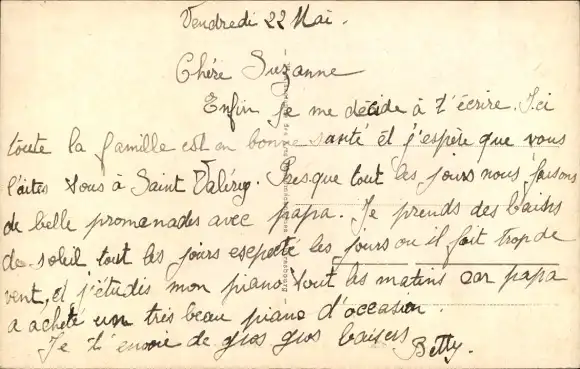 Vendredi 22 Mai.
Chère Suzanne
Enfin je me décide à t'écrire. Ici
toute la famille est en bonne santé et j'espère que vous
l'aites tous à Saint Valéry. Presque tout les jours nous faisons
de belle promenades avec papa. Je prends des bains
de soleil tout les jours esepté les jours ou il fait trop de
vent, et j'étudis mon piano tout les matins car papa
a acheté un très beau piano d'occasion.
Je t'envoie de gros gros baisers
Betty.